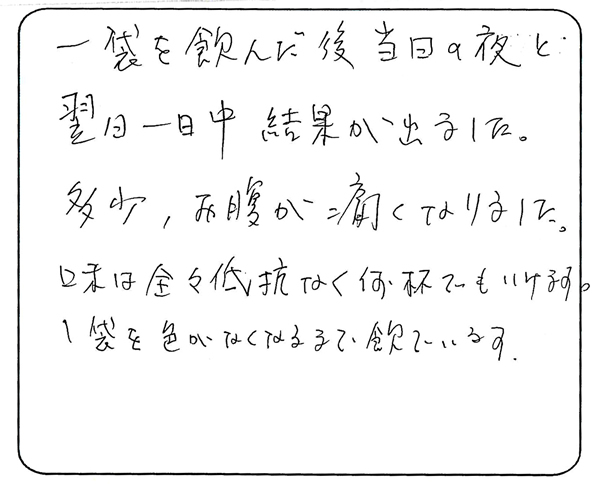 一袋を飲んだ後当日の夜と
翌日一日中 結果が出ました。
多少，お腹が痛くなりました。
口味は全々低抗なく何杯でもいけます。
1袋を色がなくなるまで飲でいます.